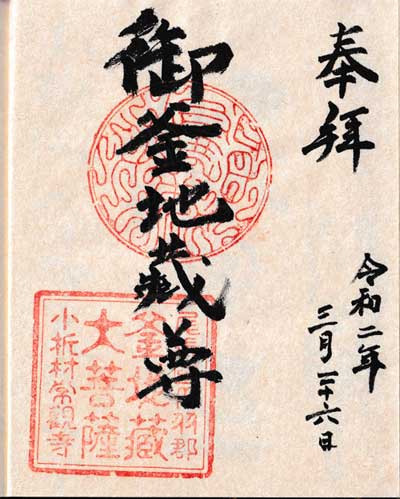 奉拝
令和二年
三月二十六日
御釜地蔵尊
羽郡
釜地藏
大菩薩
小折村常觀寺